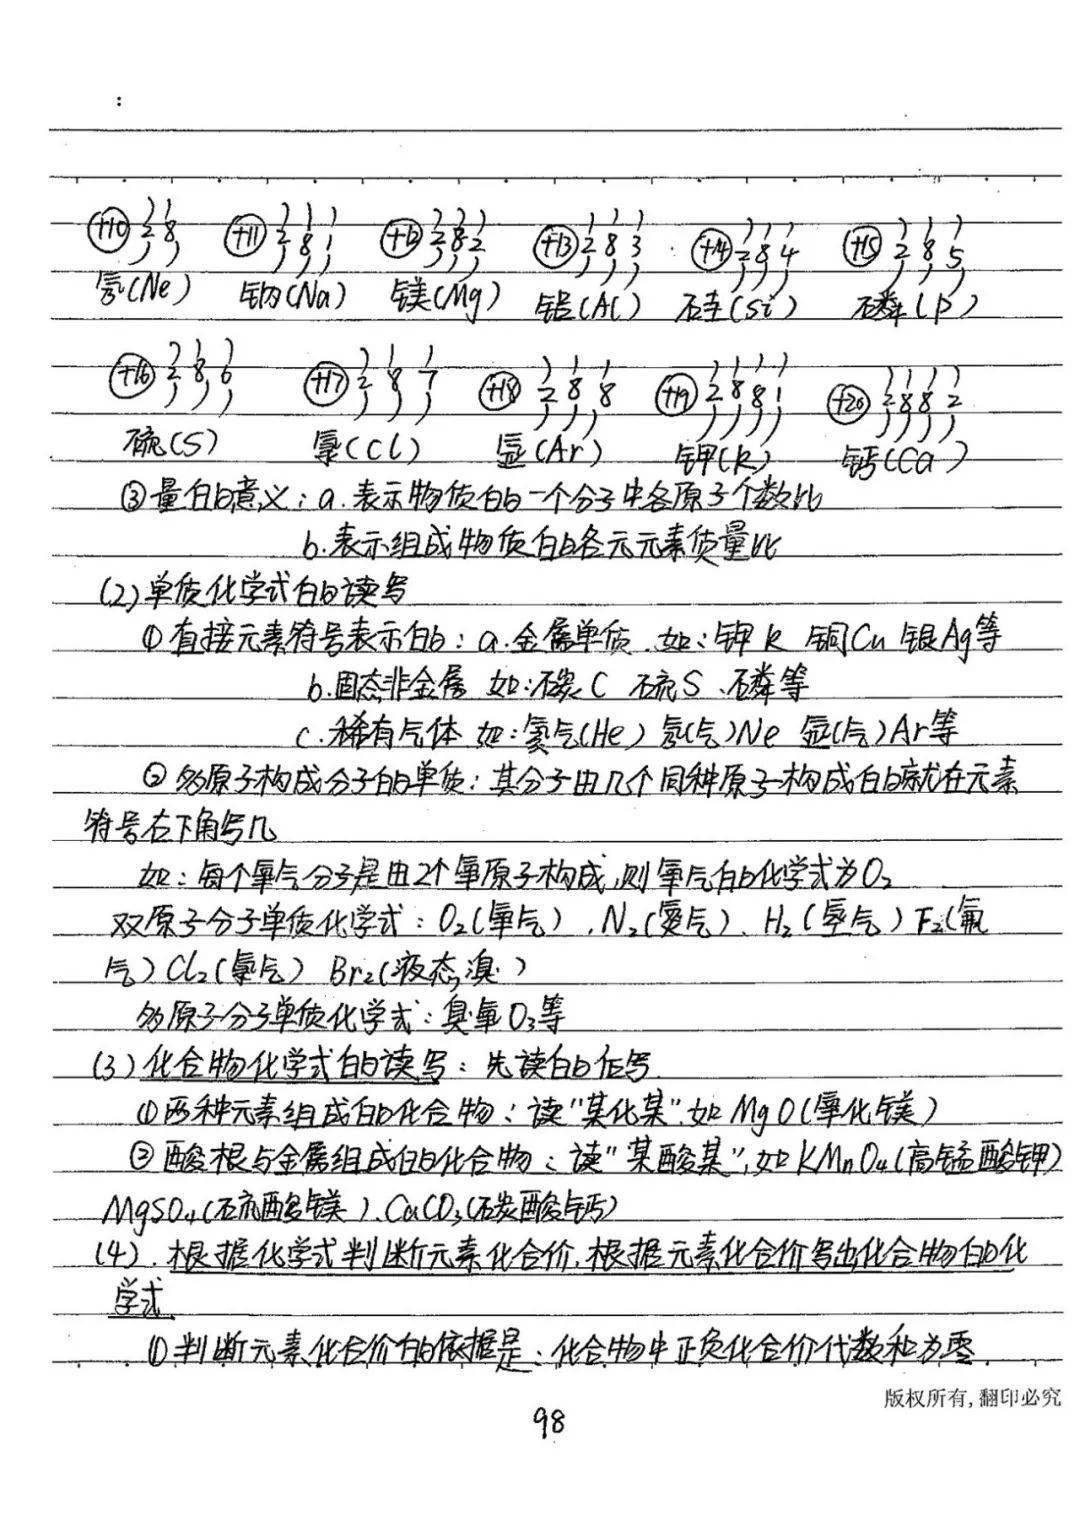 :
+10 2 8 +11 2 8 1 +12 2 8 2 +13 2 8 3 +14 2 8 4 +15 2 8 5
氖(Ne) 钠(Na) 镁(Mg) 铝(Al) 硅(Si) 磷(P)
+16 2 8 6 +17 2 8 7 +18 2 8 8 +19 2 8 8 1 +20 2 8 8 2
硫(S) 氯(Cl) 氩(Ar) 钾(K) 钙(Ca)
③量的意义:a.表示物质的一个分子中各原子个数比
b.表示组成物质的各元元素质量比
(2)单质化学式的读写
①直接元素符号表示的:a.金属单质.如:钾K 铜Cu 银Ag等
b.固态非金属 如:碳C 硫S、磷等
c.稀有气体 如:氦气(He)氖(气)Ne 氩(气)Ar等
②多原子构成分子的单质:其分子由几个同种原子构成的就在元素
符号右下角写几
如:每个氧气分子是由2个氧原子构成,则氧气的化学式为O₂
双原子分子单质化学式:O₂(氧气),N₂(氮气)、H₂(氢气)F₂(氟
气)Cl₂(氯气) Br₂(液态溴)
多原子分子单质化学式:臭氧O₃等
(3)化合物化学式的读写:先读的后写.
①两种元素组成的化合物:读“某化某”.如MgO(氧化镁)
②酸根与金属组成的化合物:读“某酸某”,如KMnO₄(高锰酸钾)
MgSO₄(硫酸镁)、CaCO₃(碳酸钙)
(4).根据化学式判断元素化合价,根据元素化合价写出化合物的化
学式.
①判断元素化合价的依据是:化合物中正负化合价代数和为零.
版权所有,翻印必究
98